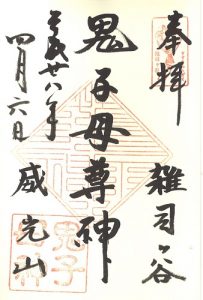 奉拝
雑司ヶ谷
鬼子母尊神
平成廿八年
四月六日
威光山
鬼子
母神